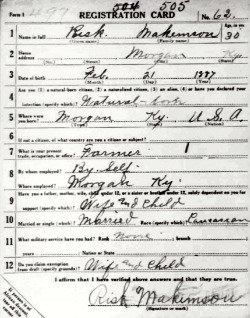 Form 1 499 504 505
REGISTRATION CARD No. 62
1 Name in full Risk Makinson Age, in yrs. 30
(Given name) (Family name)
2 Home address Morgan Ky.
(No.) (Street) (City) (State)
3 Date of birth Feb. 21 1887
(Month) (Day) (Year)
4 Are you (1) a natural-born citizen, (2) a naturalized citizen, (3) an alien, (4) or have you declared your
intention (specify which)? Natural-born
5 Where were you born? Morgan Ky. U.S.A.
(Town) (State) (Nation)
6 If not a citizen, of what country are you a citizen or subject?
7 What is your present trade, occupation, or office? Farmer
8 By whom employed? By Self
Where employed? Morgan Ky.
9 Have you a father, mother, wife, child under 12, or a sister or brother under 12, solely dependent on you for
support (specify which)? Wife and Child
10 Married or single (which)? Married Race (specify which)? Caucasian
11 What military service have you had? Rank None branch
years Nation or State
12 Do you claim exemption from draft (specify grounds)? Wife and Child
I affirm that I have verified above answers and that they are true.
Risk Makinson
(Signature or mark)